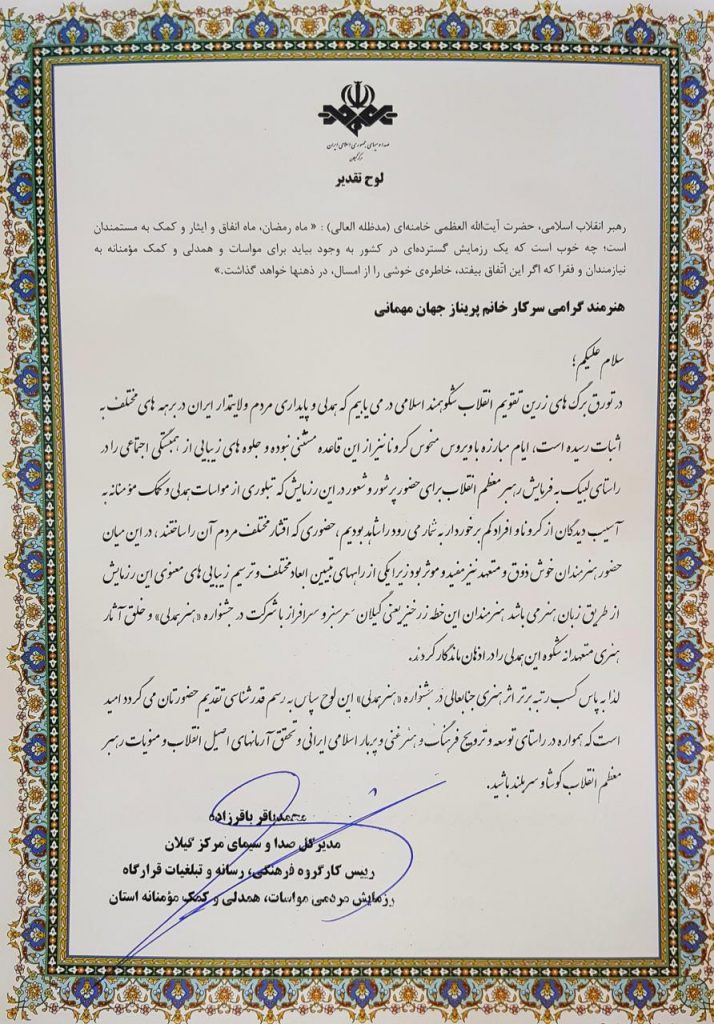 صدا و سیمای جمهوری اسلامی ایران
مرکز گیلان
لوح تقدیر
رهبر انقلاب اسلامی، حضرت آیت‌الله العظمی خامنه‌ای (مدظله العالی) : « ماه رمضان، ماه انفاق و ایثار و کمک به مستمندان
است؛ چه خوب است که یک رزمایش گسترده‌ای در کشور به وجود بیاید برای مواسات و همدلی و کمک مؤمنانه به
نیازمندان و فقرا که اگر این اتّفاق بیفتد، خاطره‌ی خوشی را از امسال، در ذهنها خواهد گذاشت.»
هنرمند گرامی سرکار خانم پریناز جهان مهمانی
سلام علیکم ؛
در تورق برگ های زرین تقویم انقلاب شکوهمند اسلامی در می یابیم که همدلی و پایداری مردم ولایتمدار ایران در برهه های مختلف به
اثبات رسیده است، ایام مبارزه با ویروس منحوس کرونا نیز از این قاعده مستثنی نبوده و جلوه های زیبایی از همبستگی اجتماعی را در
راستای لبیک به فرمایش رهبر معظم انقلاب برای حضور پر شور و شعور در این رزمایش که تبلوری از مواسات همدلی و کمک مؤمنانه به
آسیب دیدگان از کرونا و افراد کم برخوردار به شمار می رود را شاهد بودیم ، حضوری که اقشار مختلف مردم آن را ساختند ، در این میان
حضور هنرمندان خوش ذوق و متعهد نیز مفید و موثر بود زیرا یکی از راههای تبیین ابعاد مختلف و ترسیم زیبایی های معنوی این رزمایش
از طریق زبان هنر می باشد هنرمندان این خطه زرخیز یعنی گیلان سرسبز و سرافراز با شرکت در جشنواره «هنر همدلی» و خلق آثار
هنری متعهدانه شکوه این همدلی را در اذهان ماندگار کردند.
لذا به پاس کسب رتبه برتر اثر هنری جنابعالی در جشنواره «هنر همدلی» این لوح سپاس به رسم قدرشناسی تقدیم حضورتان می گردد امید
است که همواره در راستای توسعه و ترویج فرهنگ و هنر غنی و پربار اسلامی ایرانی و تحقق آرمانهای اصیل انقلاب و منویات رهبر
معظم انقلاب کوشا و سربلند باشید.
محمدباقر باقرزاده
مدیرکل صدا و سیمای مرکز گیلان
رییس کارگروه فرهنگی، رسانه و تبلغیات قرارگاه
رزمایش مردمی مواسات، همدلی و کمک مؤمنانه استان